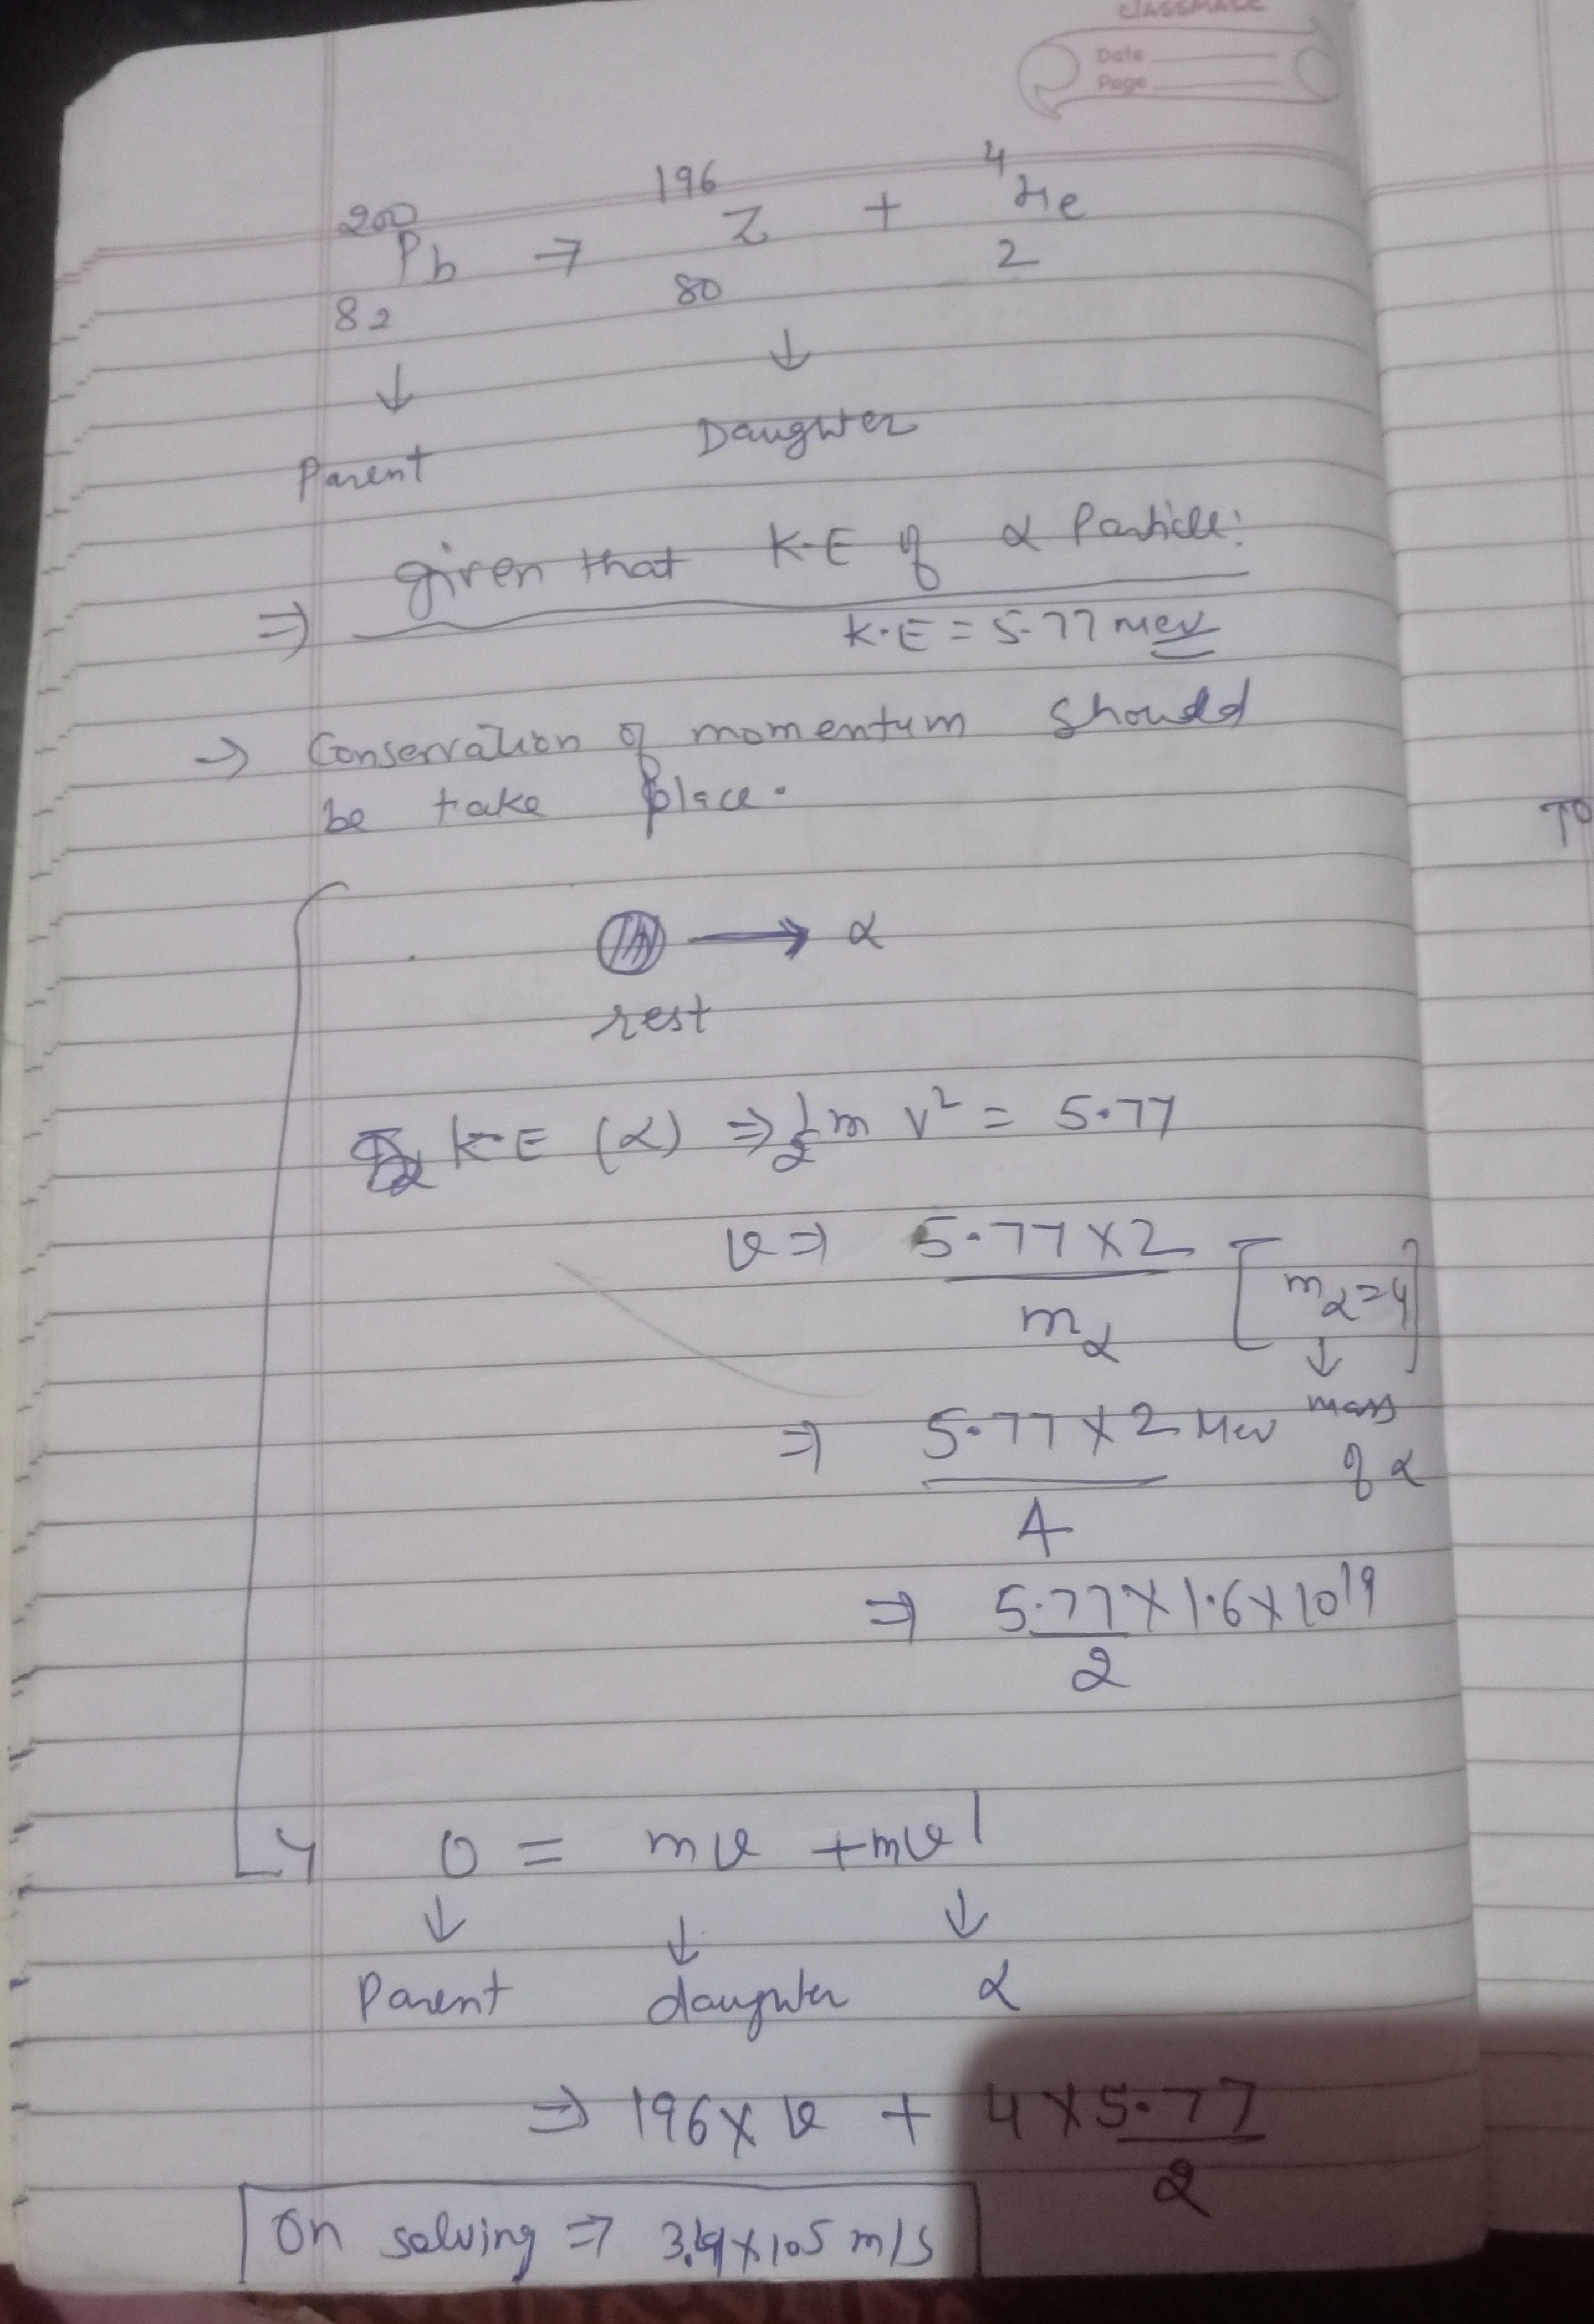 classmate
Date
Page
200 196 4
Pb → Z + He
82 80 2
↓ ↓
Parent Daughter
⇒ given that K.E of α Particle:
K.E = 5.77 Mev
→ Conservation of momentum should
be take place.
→ α
rest
K.E (α) ⇒ 1/2 m v² = 5.77
v ⇒ 5.77 × 2 / mα [mα = 4]
↓
mass
of α
⇒ 5.77 × 2 Mev / 4
⇒ 5.77 / 2 × 1.6 × 10¹⁹
↳ 0 = mv + mv'
↓ ↓ ↓
Parent daughter α
⇒ 196 × v + 4 × 5.77 / 2
On solving ⇒ × 10 5 m/s
TO